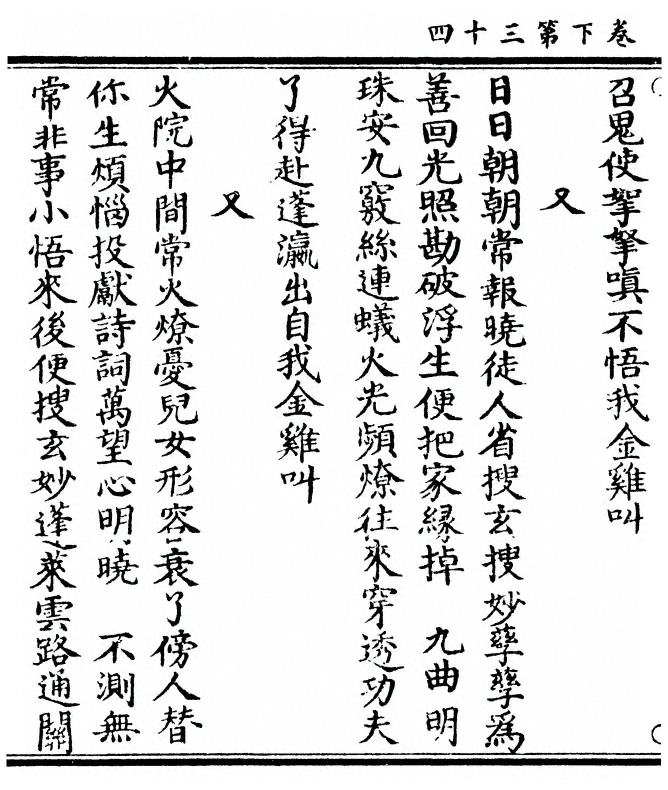 卷下第三十四
召鬼使挐拏嗔不悟我金雞叫
又
日日朝朝常報曉徒人省搜玄搜妙孳孳爲
善回光照勘破浮生便把家緣掉　九曲明
珠安九竅絲連蟻火光頻燎往來穿透功夫
了得赴蓬瀛出自我金雞叫
又
火院中間常火燎憂兒女形容衰了傍人替
你生煩惱投獻詩詞萬望心明曉　不測無
常非事小悟來後便搜玄妙蓬萊雲路通關